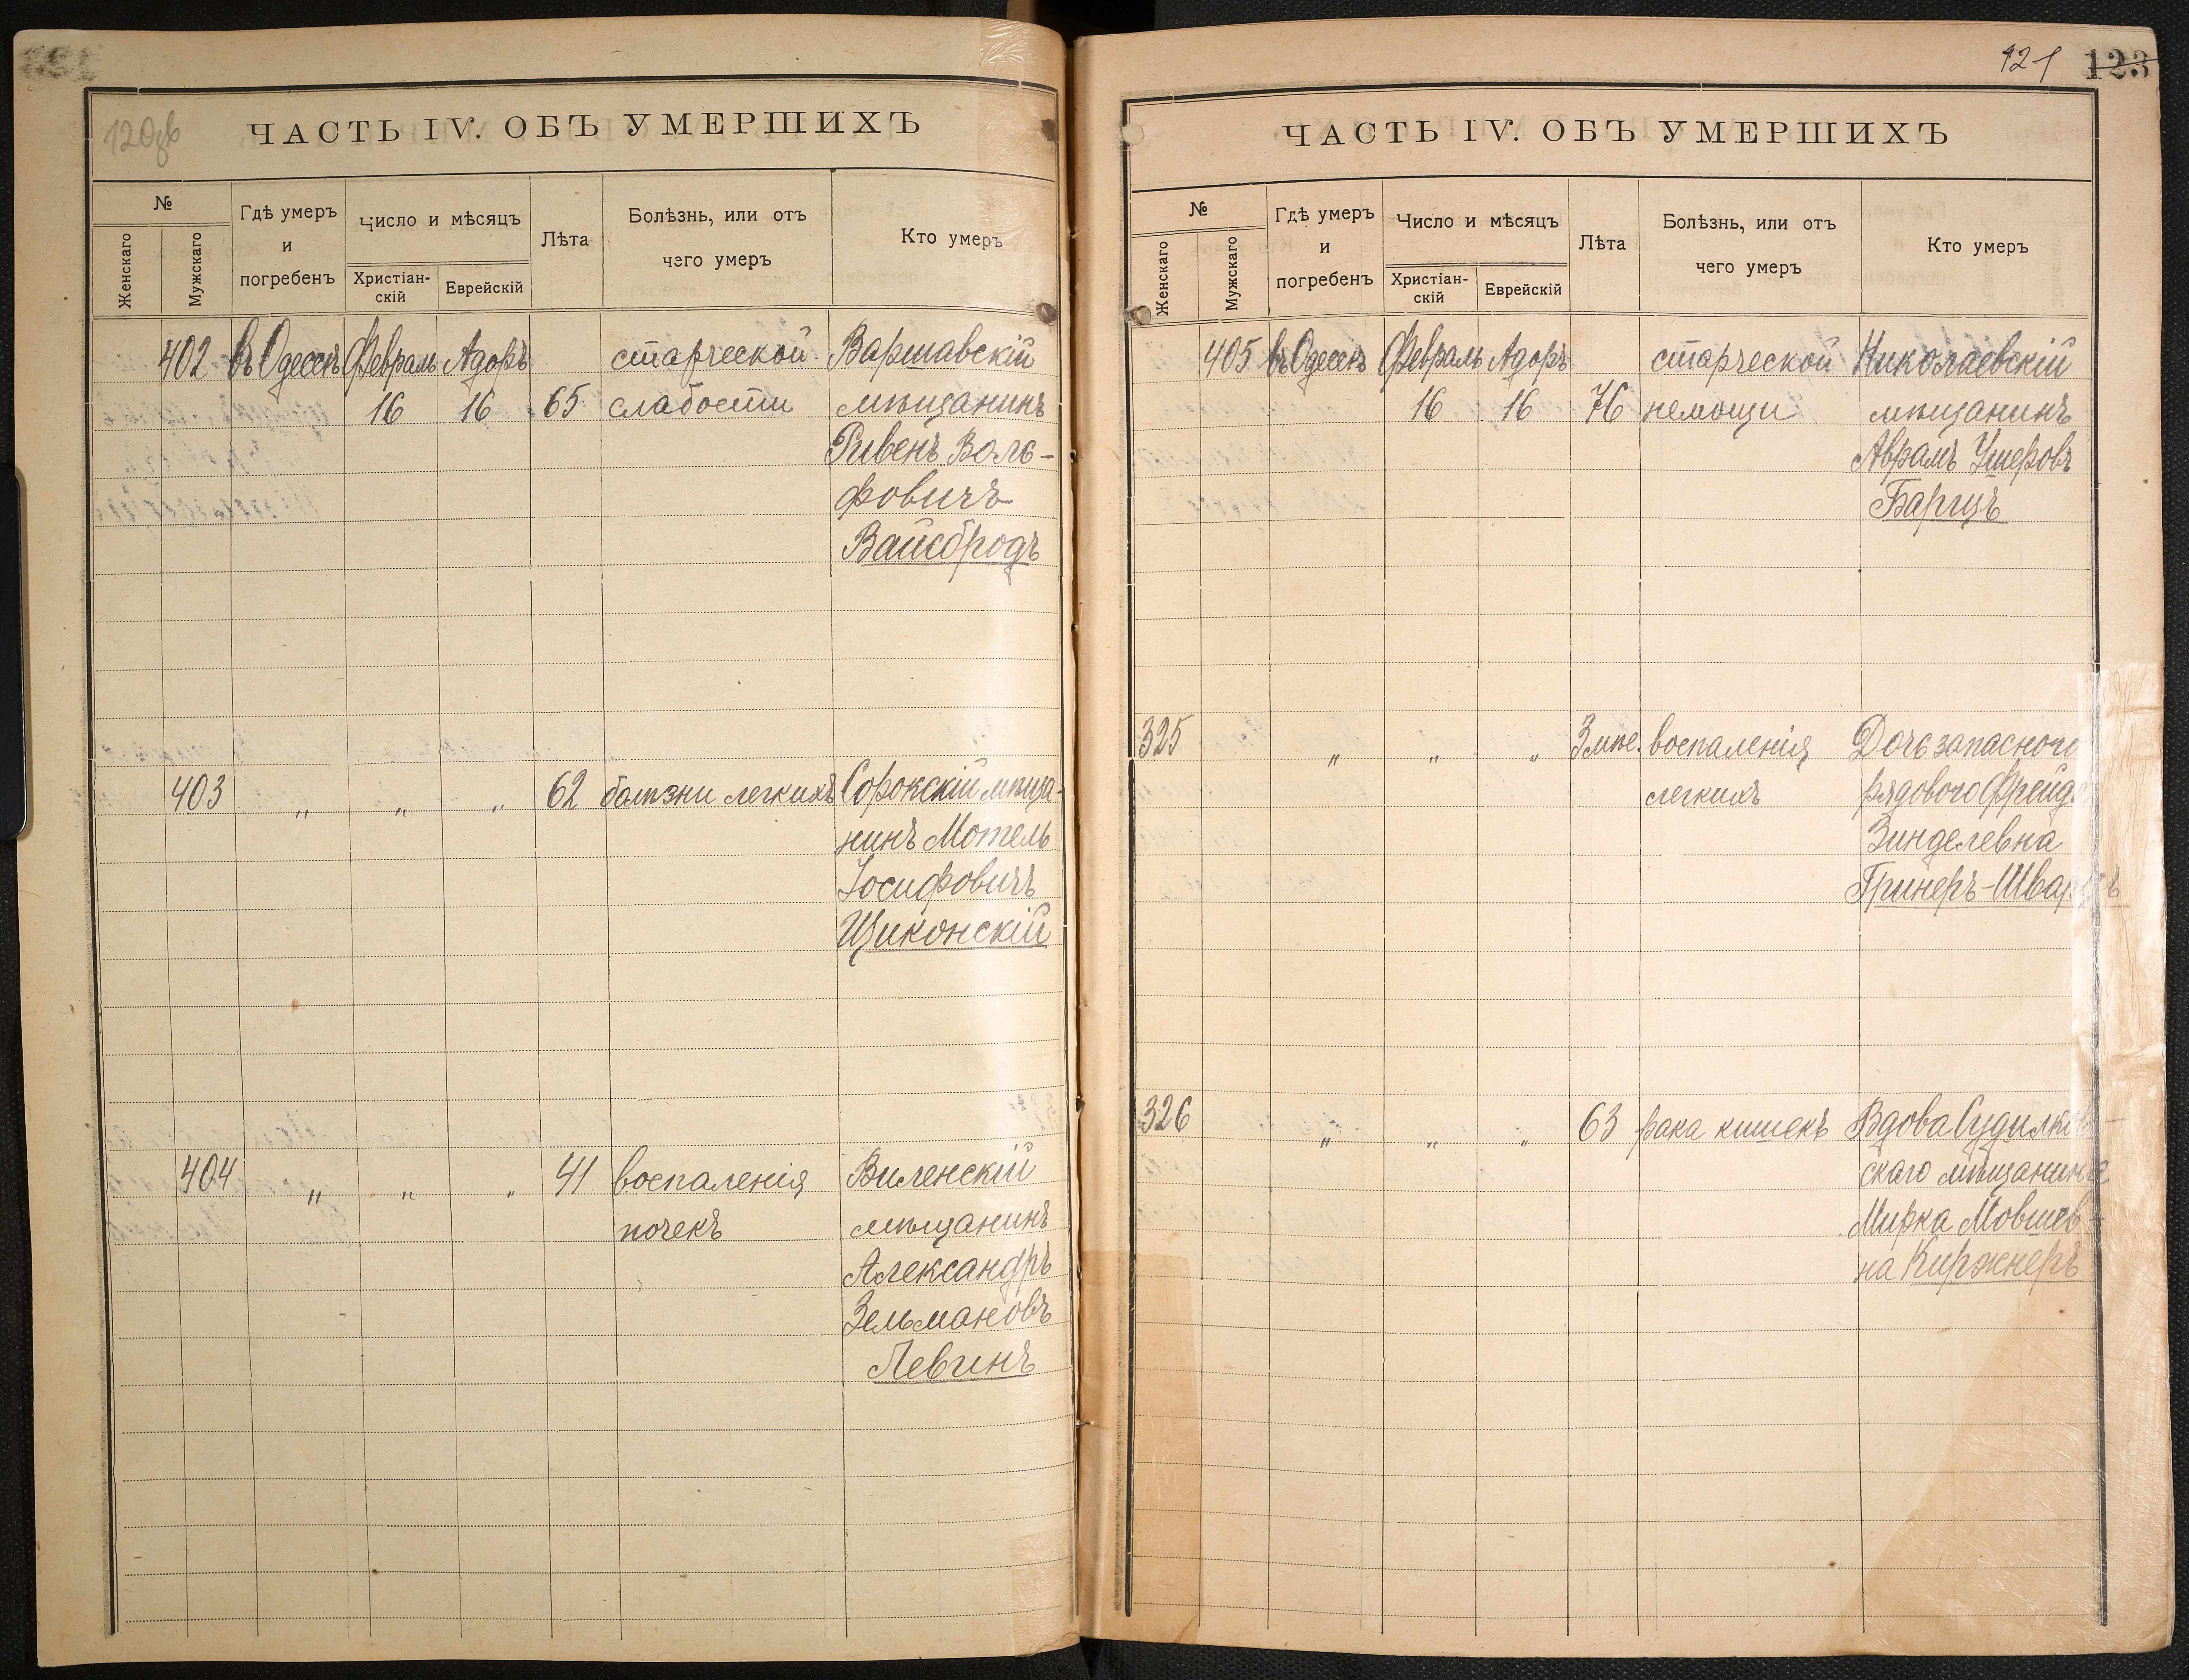 120об
ЧАСТЬ IV. ОБЪ УМЕРШИХЪ
№
Женскаго
Мужскаго
Гдѣ умеръ
и
погребенъ
Число и мѣсяцъ
Христіан-
скій
Еврейскій
Лѣта
Болѣзнь, или отъ
чего умеръ
Кто умеръ
402 въ Одессѣ Февраль Адоръ старческой Варшавскій
16 16 65 слабости мѣщанинъ
Ривенъ Воль-
фовичъ
Вайсбродъ
403 „ „ „ 62 болѣзни легкихъ Сорокскій мѣща-
нинъ Мотель
Іосифовичъ
Щиконскій
404 „ „ „ 41 воспаленія Виленскій
почекъ мѣщанинъ
Александръ
Зельмановъ
Левинъ
121 123
ЧАСТЬ IV. ОБЪ УМЕРШИХЪ
№
Женскаго
Мужскаго
Гдѣ умеръ
и
погребенъ
Число и мѣсяцъ
Христіан-
скій
Еврейскій
Лѣта
Болѣзнь, или отъ
чего умеръ
Кто умеръ
405 въ Одессѣ Февраль Адоръ старческой Николаевскій
16 16 76 немощи мѣщанинъ
Аврамъ Ушеровъ
Барцъ
325 „ „ „ 3 мѣс. воспаленія Дочь запасного
легкихъ рядового Фрейда
Зинделевна
Гринеръ-Шварцъ
326 „ „ „ 63 рака кишекъ Вдова Судилков-
скаго мѣщанина
Мирка Мовшев-
на Киржнеръ